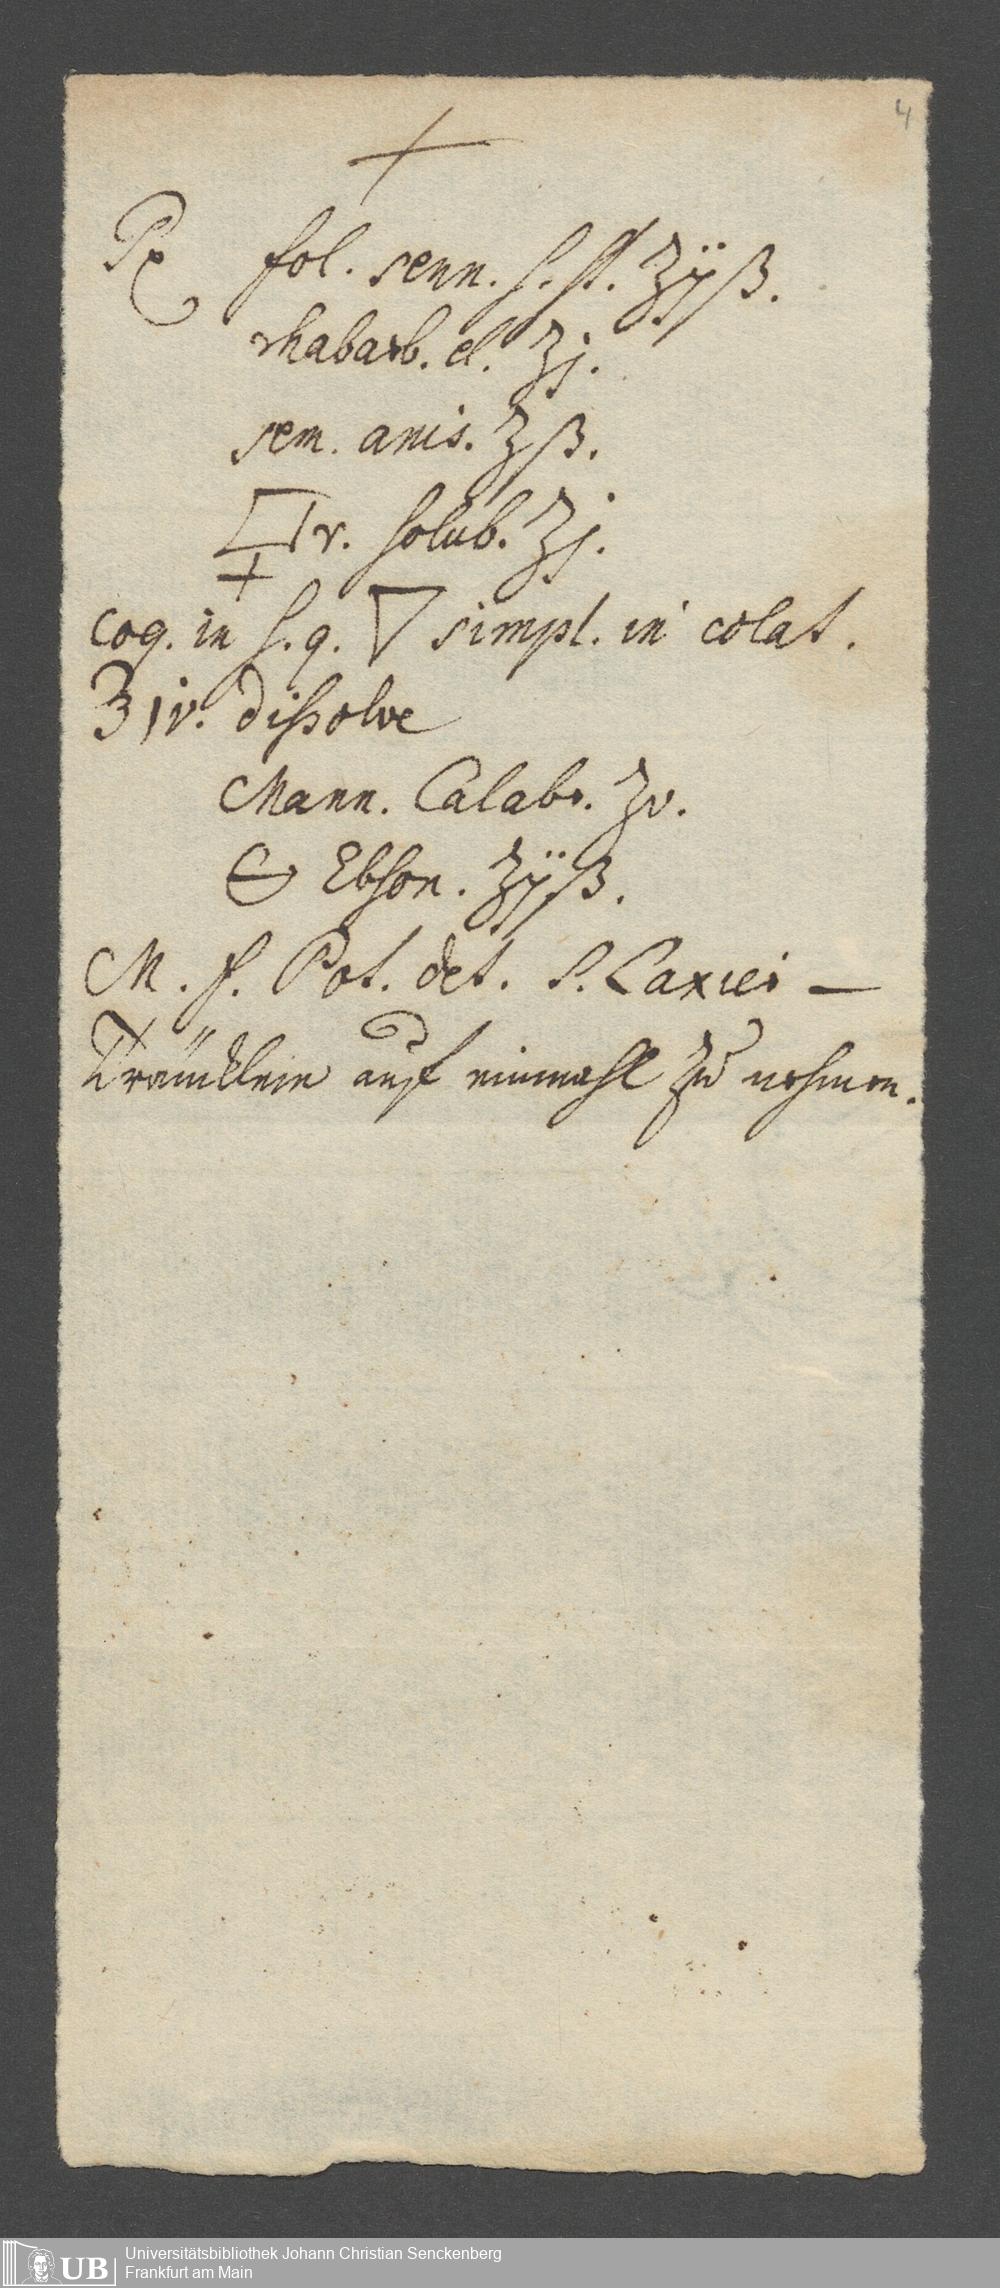 4
+
℞ fol. senn. s. st. ʒijß.
rhabarb. el. ʒj.
sem. anis. ʒß.
🜿r. solub. ʒj.
coq. in s. q. 🜄 simpl. in colat.
℥iv. dissolve
Mann. Calabr. ʒv.
🜔 Ebson. ʒijß.
M. f. Pot. det. S. Laxier –
Träncklein auf einmahl zu nehmen.
UB Universitätsbibliothek Johann Christian Senckenberg
Frankfurt am Main